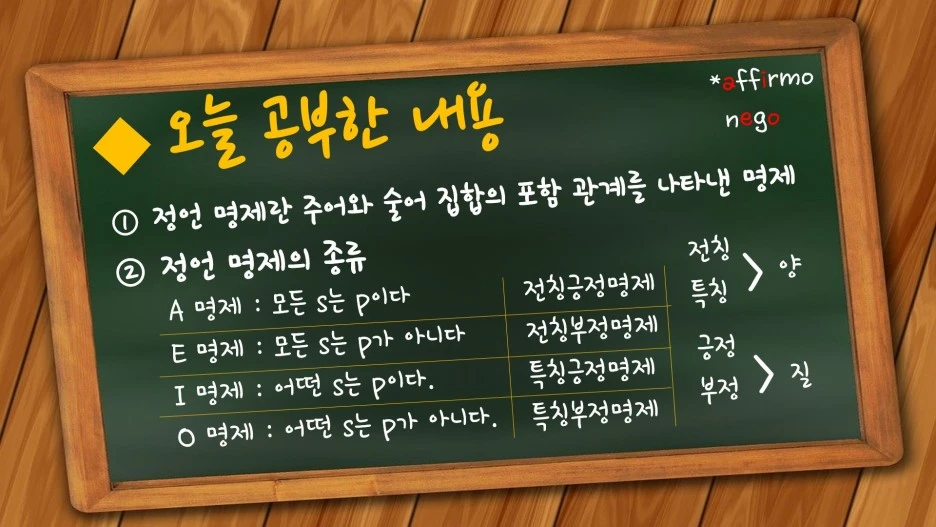 ◆ 오늘 공부한 내용
*affirmo
nego
① 정언 명제란 주어와 술어 집합의 포함 관계를 나타낸 명제
② 정언 명제의 종류
A 명제 : 모든 s는 p이다 전칭긍정명제
E 명제 : 모든 s는 p가 아니다 전칭부정명제
I 명제 : 어떤 s는 p이다. 특칭긍정명제
O 명제 : 어떤 s는 p가 아니다. 특칭부정명제
전칭
특칭 > 양
긍정
부정 > 질